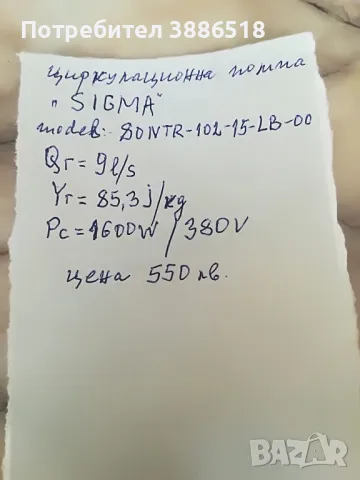 Потребител 3886518
циркулационна помпа
"SIGMA"
model: 80NTR-102-15-LB-00
Qг = 9l/s
Yг = 85,3 j/kg
Pc = 1600W / 380V
цена 550 лв.
BAZAR